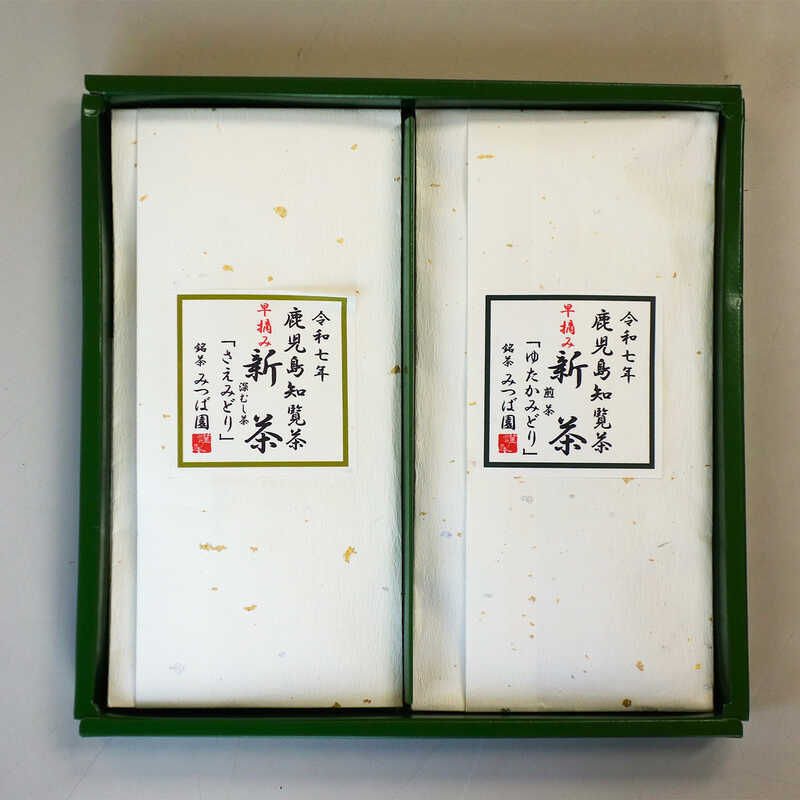 令和七年
鹿児島知覧茶
早摘み
新茶
深むし茶
「さえみどり」
銘茶 みつば園
謹製
令和七年
鹿児島知覧茶
早摘み
新茶
煎茶
「ゆたかみどり」
銘茶 みつば園
謹製